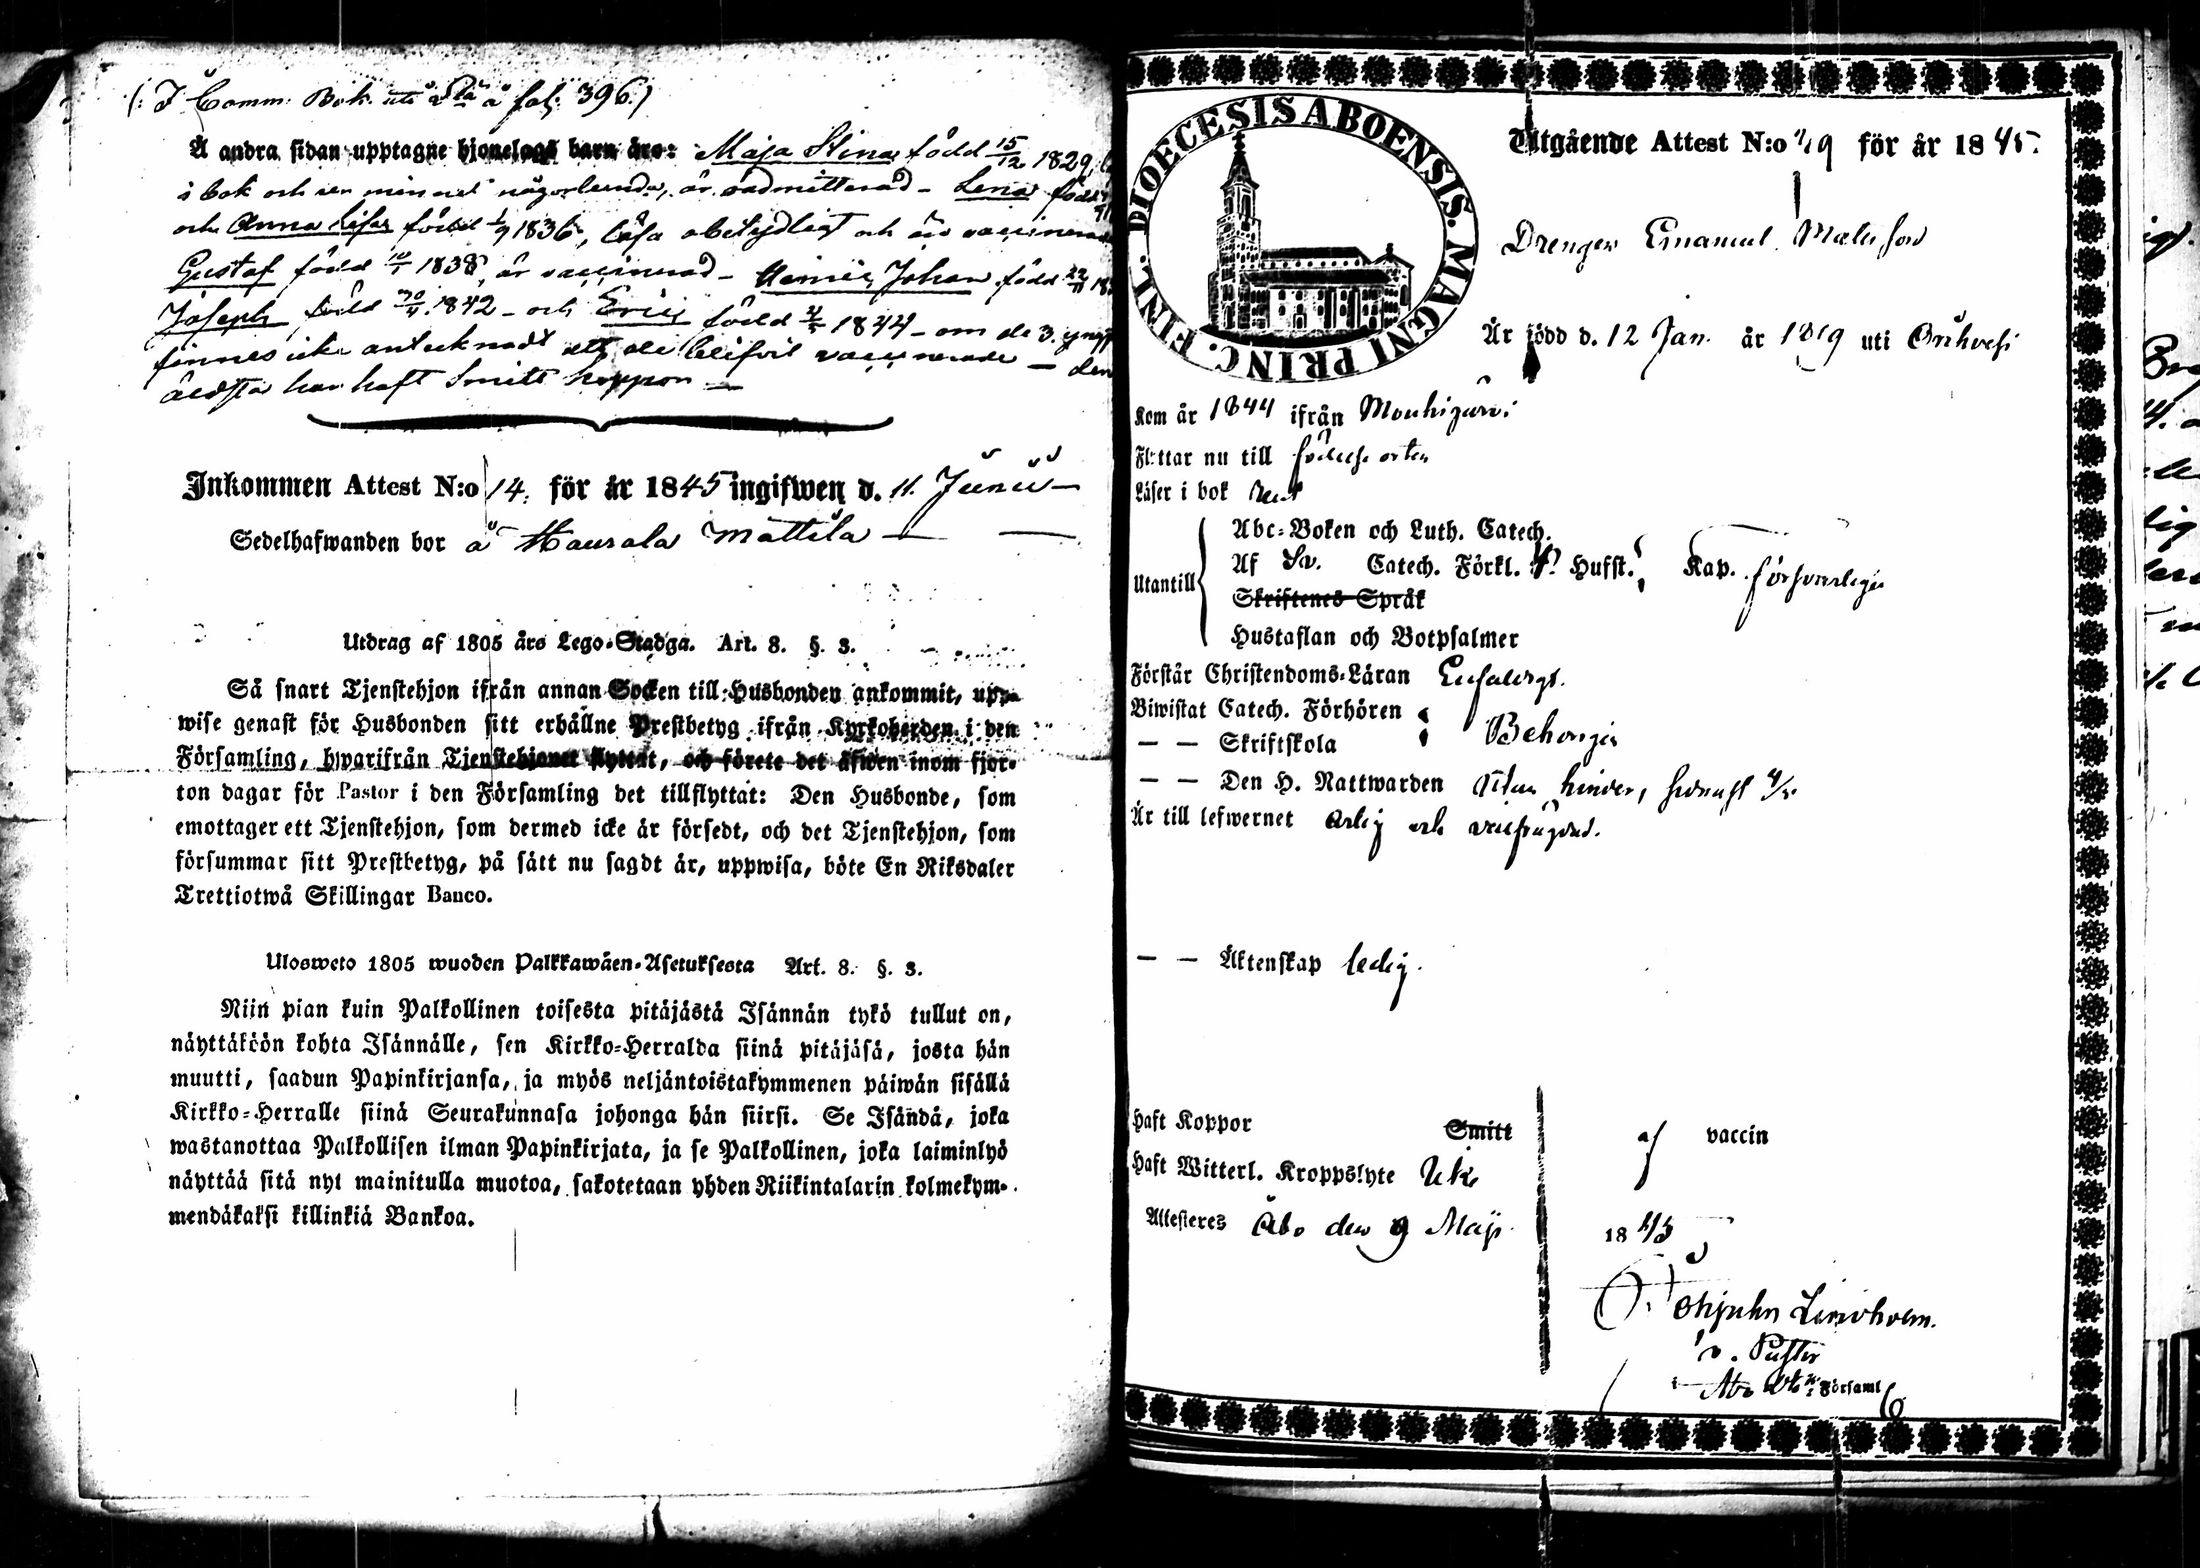 (: I Comm: Bok uti å fol: 396.)
Å andra sidan upptagne hjonelags barn äro: Maja Stina född 15/12 1829,
i bok och är admitterad – Lena född
och Anna Lisa född 1/9 1836, läsa obetydligt och äro
Gustaf född 1838, är vaccinerad – Johan född 22
Joseph född 1842 – och Eric född 1844 – om de 3. yngs
finnes icke antecknadt att de blifvit vaccinerade – den
äldsta har haft Smitt koppor –
Inkommen Attest N:o 14. för år 1845 ingifwen d. 11. Junii –
Sedelhafwanden bor å Haurala Mattila –
Utdrag af 1805 års Lego-Stadga. Art. 8. §. 3.
Så snart Tjenstehjon ifrån annan Socken till Husbonden ankommit, upp-
wise genast för Husbonden sitt erhållne Prestbetyg ifrån Kyrkoherden i den
Församling, hwarifrån Tjenstehjonet flyttat, och förete det äfwen inom fjor-
ton dagar för Pastor i den Församling det tillflyttat: Den Husbonde, som
emottager ett Tjenstehjon, som dermed icke är försedt, och det Tjenstehjon, som
försummar sitt Prestbetyg, på sätt nu sagdt är, uppwisa, böte En Riksdaler
Trettiotwå Skillingar Banco.
Ulosweto 1805 wuoden Palkkawäen-Asetuksesta Art. 8. §. 3.
Niin pian kuin Palkollinen toisesta pitäjästä Isännän tykö tullut on,
näyttäköön kohta Isännälle, sen Kirkko-Herralda siinä pitäjäsä, josta hän
muutti, saadun Papinkirjansa, ja myös neljäntoistakymmenen päiwän sisällä
Kirkko-Herralle siinä Seurakunnasa johonga hän siirsi. Se Isändä, joka
wastanottaa Palkollisen ilman Papinkirjata, ja se Palkollinen, joka laiminlyö
näyttää sitä nyt mainitulla muotoa, sakotetaan yhden Riikintalarin kolmekym-
mendäkaksi killinkiä Bankoa.
DIOECESIS ABOENSIS. MAGNI PRINC. FINL.
Utgående Attest N:o för år 1845.
Drengen Emanuel
Är född d. 12 Jan. år 1819 uti Orihvesi
Kom år 1844 ifrån Mouhijärvi
Flyttar nu till födelse orten
Läser i bok rent
Utantill
Abc-Boken och Luth. Catech.
Af Sv. Catech. Förkl. Hufst. Kap. försvarligen
Skriftenes Språk
Hustaflan och Botpsalmer
Förstår Christendoms-Läran Enfaldigt.
Biwistat Catech. Förhören
— — Skriftskola Behörigen
— — Den H. Nattwarden Utan hinder, senast
Är till lefwernet ärlig och
— — Äktenskap ledig.
Haft Koppor Smitt af vaccin
Haft Witterl. Kroppslyte Icke
Attesteras Åbo den 9 Maji 1845
Lindholm.
v. Pastor
Åbo Församl